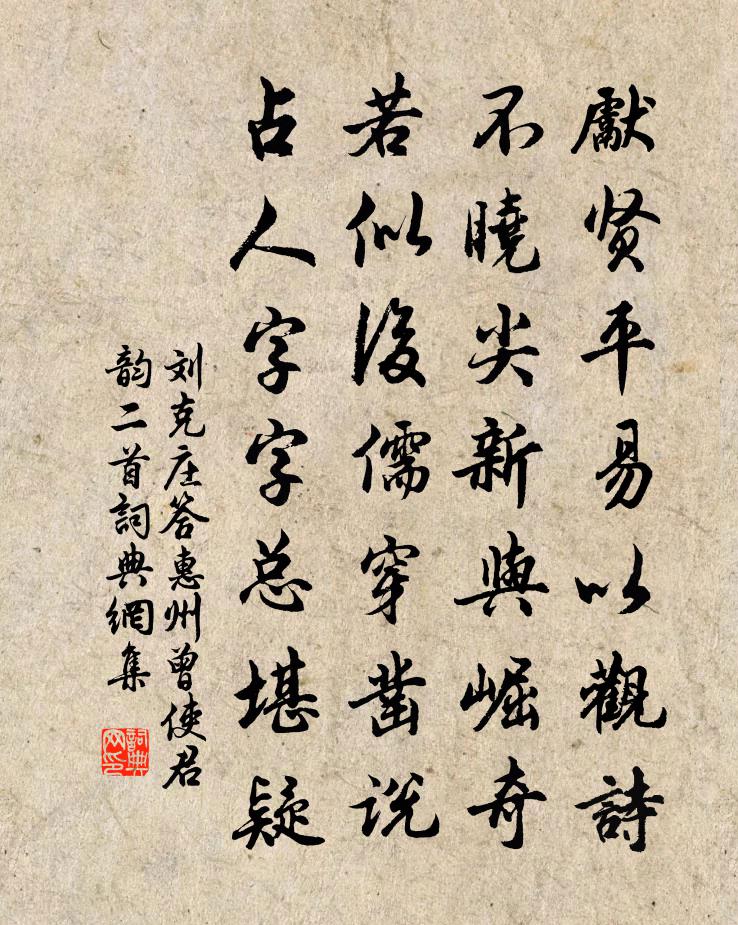 獻贤平易以觀詩
不曉尖新與崛奇
若似後儒穿凿说
占人字字总堪疑
刘克庄答惠州曾使君
韵二首詞典網集
詞典
网印